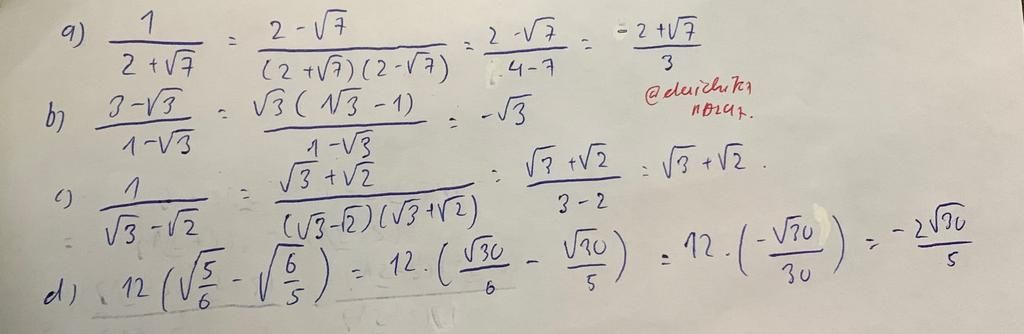 a) \frac{1}{2+\sqrt{7}} = \frac{2-\sqrt{7}}{(2+\sqrt{7})(2-\sqrt{7})} = \frac{2-\sqrt{7}}{4-7} = \frac{-2+\sqrt{7}}{3}
b) \frac{3-\sqrt{3}}{1-\sqrt{3}} = \frac{\sqrt{3}(\sqrt{3}-1)}{1-\sqrt{3}} = -\sqrt{3}
c) \frac{1}{\sqrt{3}-\sqrt{2}} = \frac{\sqrt{3}+\sqrt{2}}{(\sqrt{3}-\sqrt{2})(\sqrt{3}+\sqrt{2})} = \frac{\sqrt{3}+\sqrt{2}}{3-2} = \sqrt{3}+\sqrt{2}.
d) 12(\sqrt{\frac{5}{6}}-\sqrt{\frac{6}{5}}) = 12.(\frac{\sqrt{30}}{6}-\frac{\sqrt{30}}{5}) = 12.(\frac{-\sqrt{30}}{30}) = \frac{-2\sqrt{30}}{5}